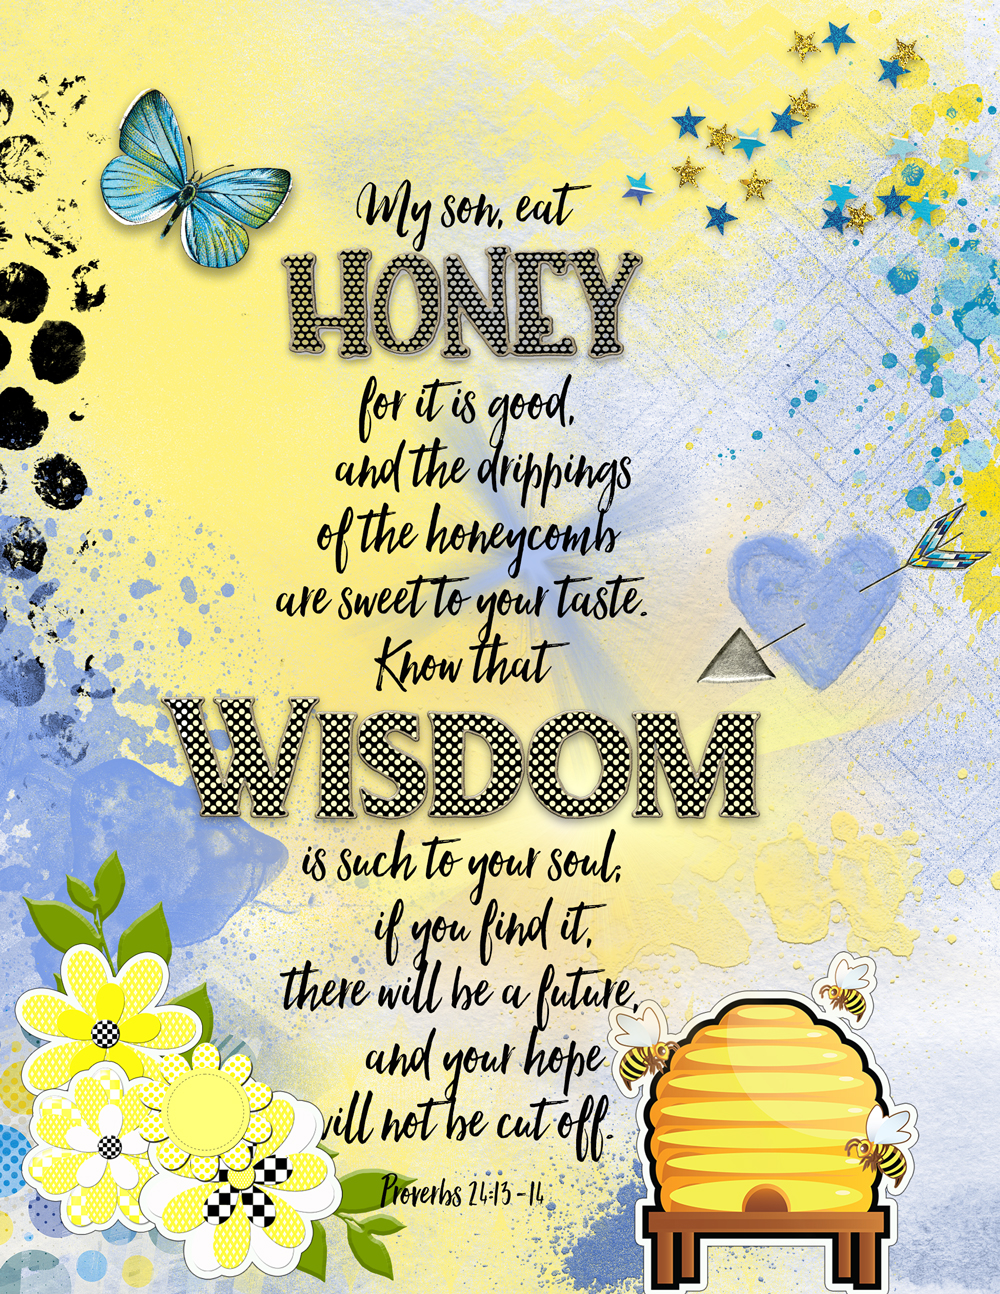 My son, eat
HONEY
for it is good,
and the drippings
of the honeycomb
are sweet to your taste.
Know that
WISDOM
is such to your soul;
if you find it,
there will be a future,
and your hope
will not be cut off.
Proverbs 24:13-14